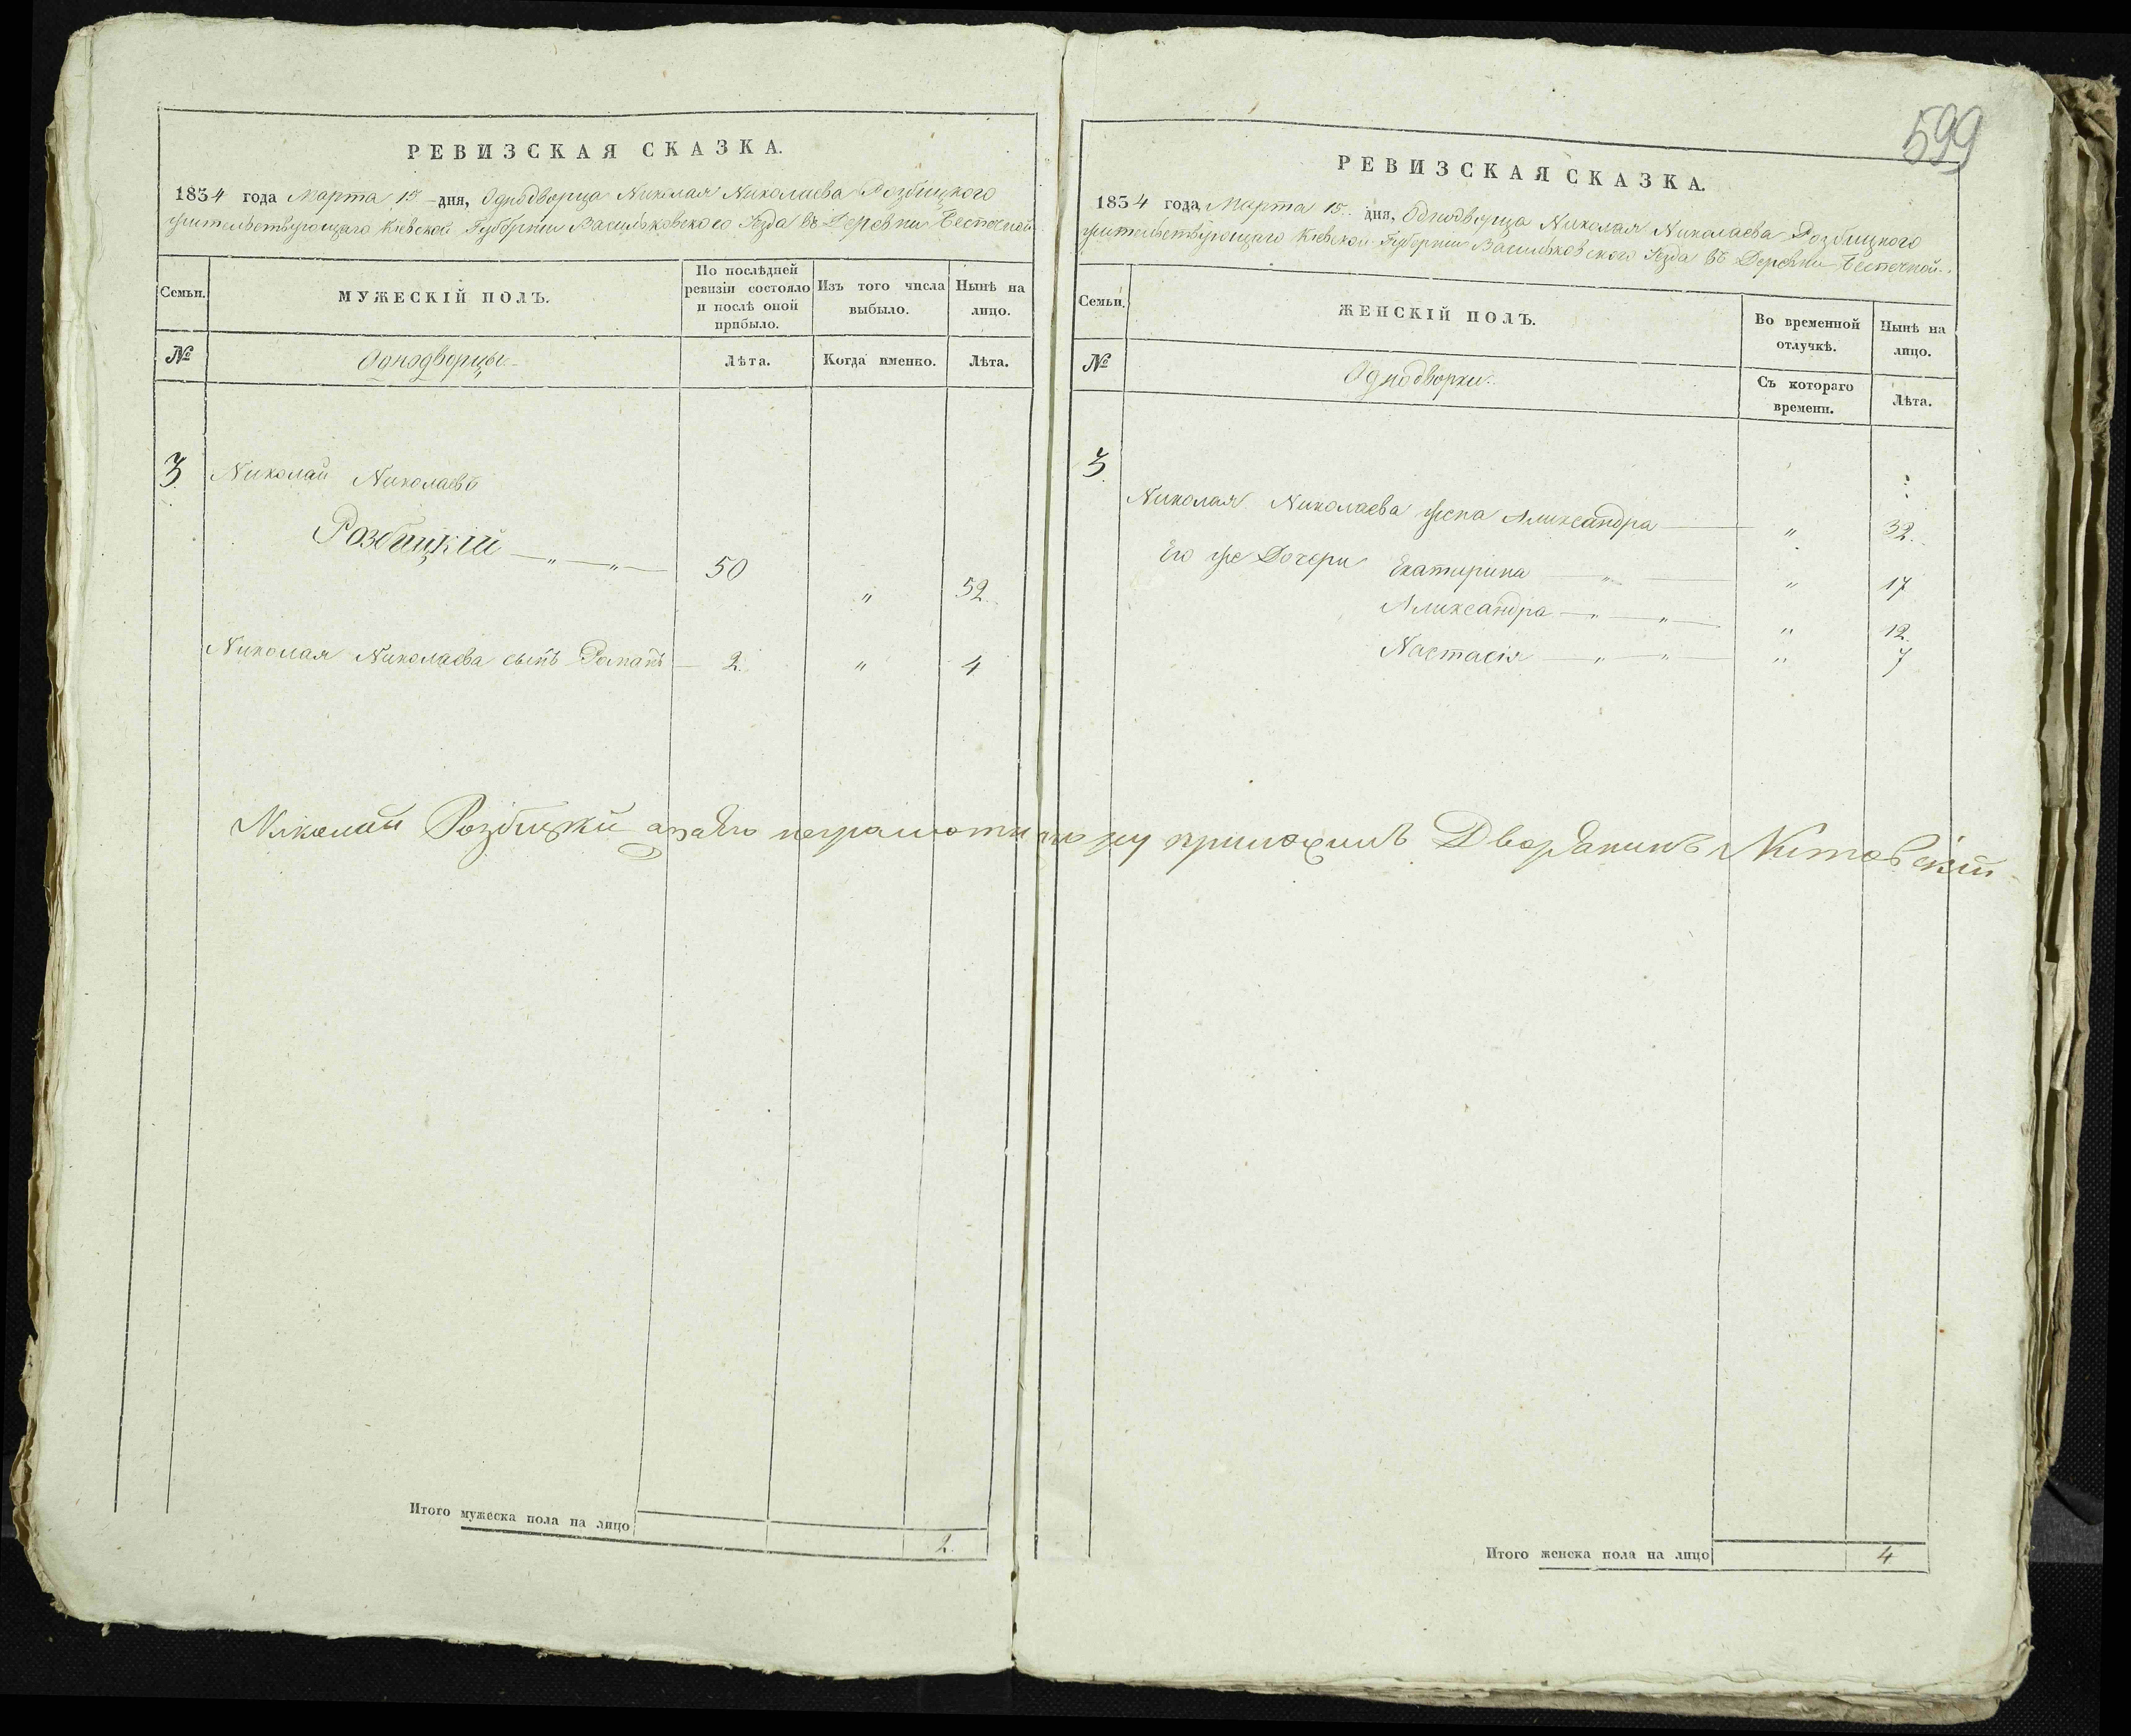 РЕВИЗСКАЯ СКАЗКА.
1834 года Марта 15 дня, Однодворца Николая Николаева Розбицкого
жительствующаго Кіевской Губерніи Васильковского Уезда въ Деревни
Семьи.
МУЖЕСКІЙ ПОЛЪ.
По послѣдней
ревизіи состояло
и послѣ оной
прибыло.
Изъ того числа
выбыло.
Нынѣ на
лицо.
№
Однодворцы
Лѣта.
Когда именно.
Лѣта.
3
Николай Николаевъ
Розбицкій — „ — „ — 50 „ 52
Николая Николаева сынъ Романъ — 2. „ 4
Николай Розбицкий а за его неграмотного руку приложилъ Дворянинъ
Итого мужеска пола на лицо
2.
599
РЕВИЗСКАЯ СКАЗКА.
1834 года Марта 15 дня, Однодворца Николая Николаева Розбицкого
жительствующаго Кіевской Губерніи Васильковского Уезда въ Деревни
Семьи.
ЖЕНСКІЙ ПОЛЪ.
Во временной
отлучкѣ.
Нынѣ на
лицо.
№
Однодворки
Съ котораго
времени.
Лѣта.
3
Николая Николаева жена Александра — „ 32.
Его же Дочери Екатирина — „ — „ 17
Александра — „ — „ — „ 12.
Настасія — „ — „ — „ 7
Итого женска пола на лицо
4